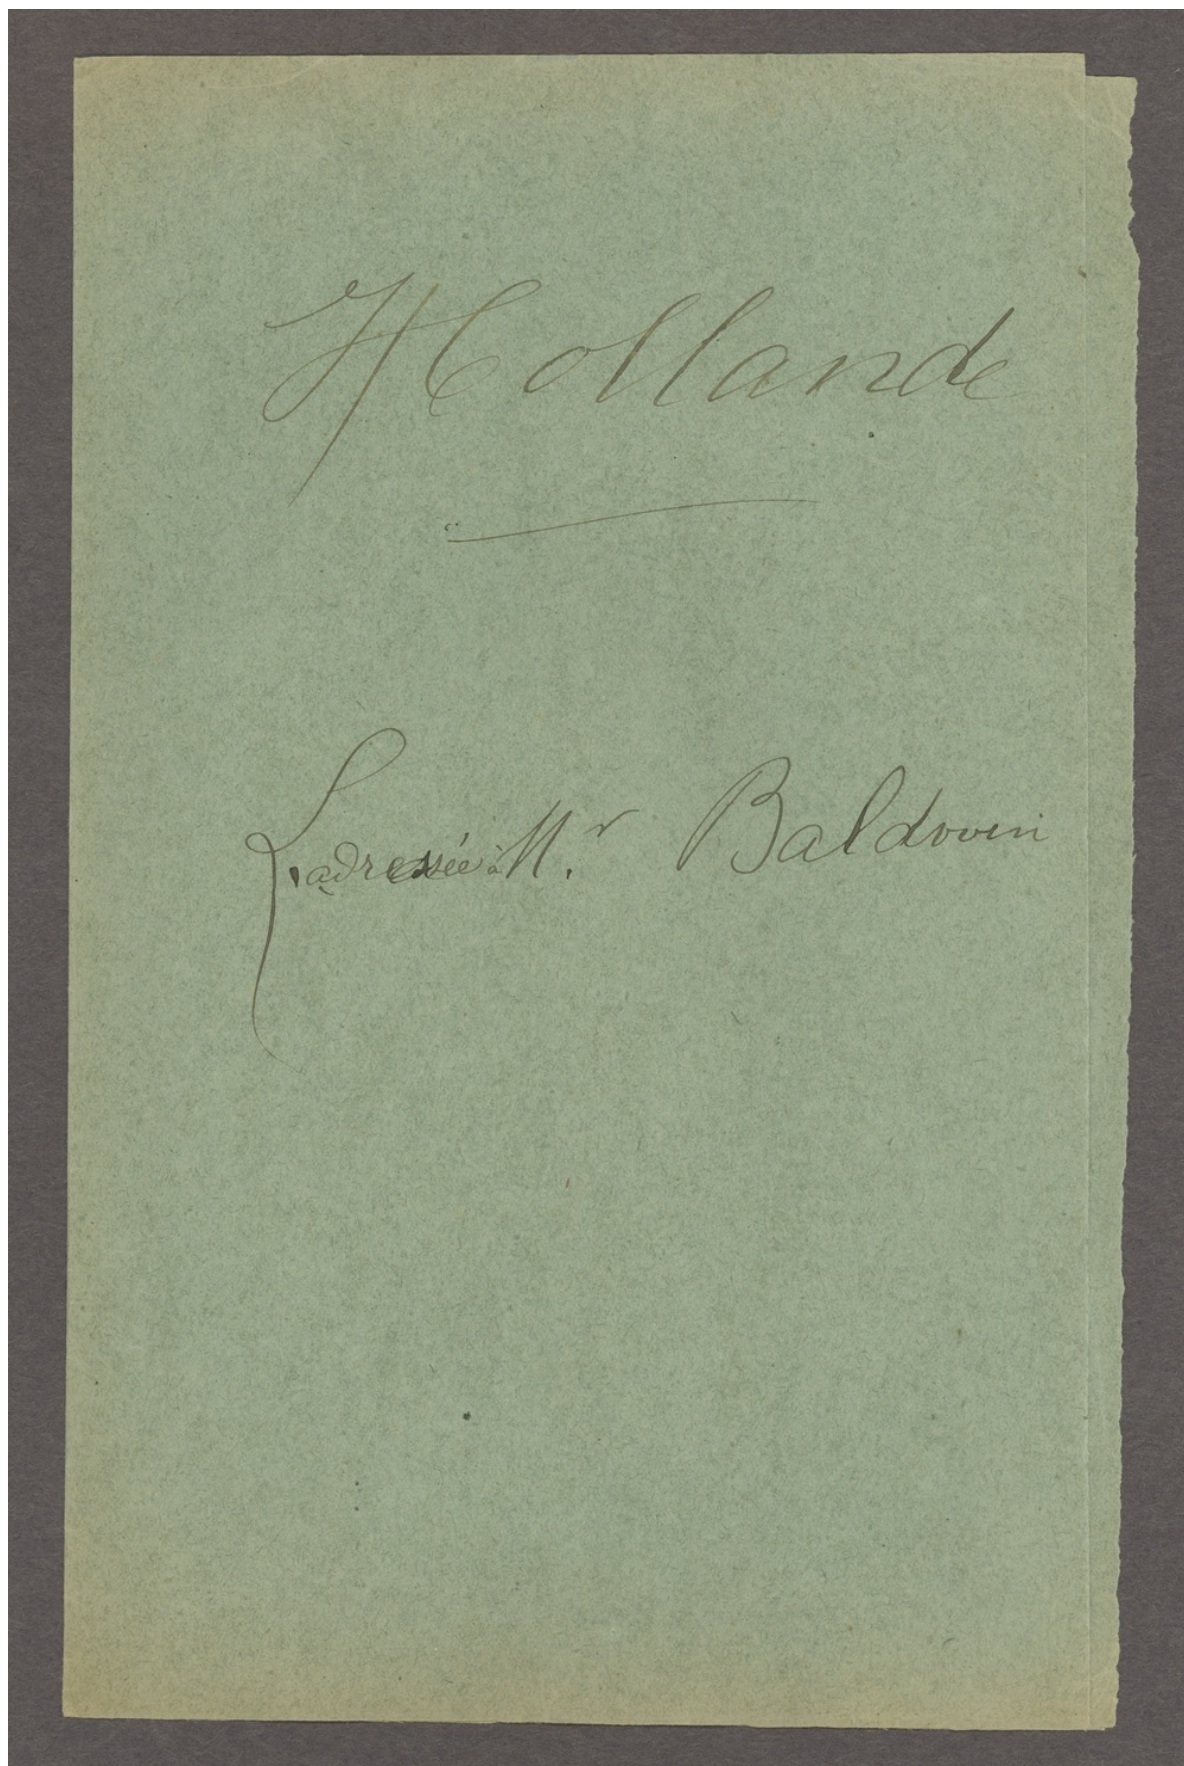 Hollande
L. adressée à M.r Baldovin